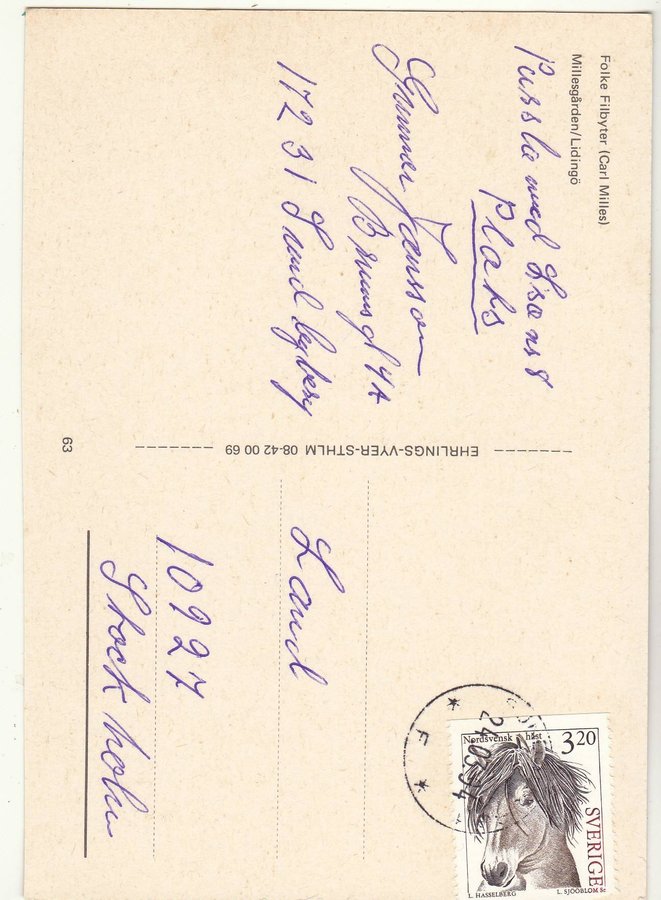 Folke Filbyter (Carl Milles)
Millesgården/Lidingö
Pussla med
plats
Gunnar Jansson
Brunnsg 4A
172 31 Sundbyberg
EHRLINGS-VYER-STHLM 08-42 00 69
63
Land
10927
Stockholm
24.03.94
* F *
Nordsvensk häst
3.20
SVERIGE
L. HASSELBERG
L. SJÖÖBLOM Sc